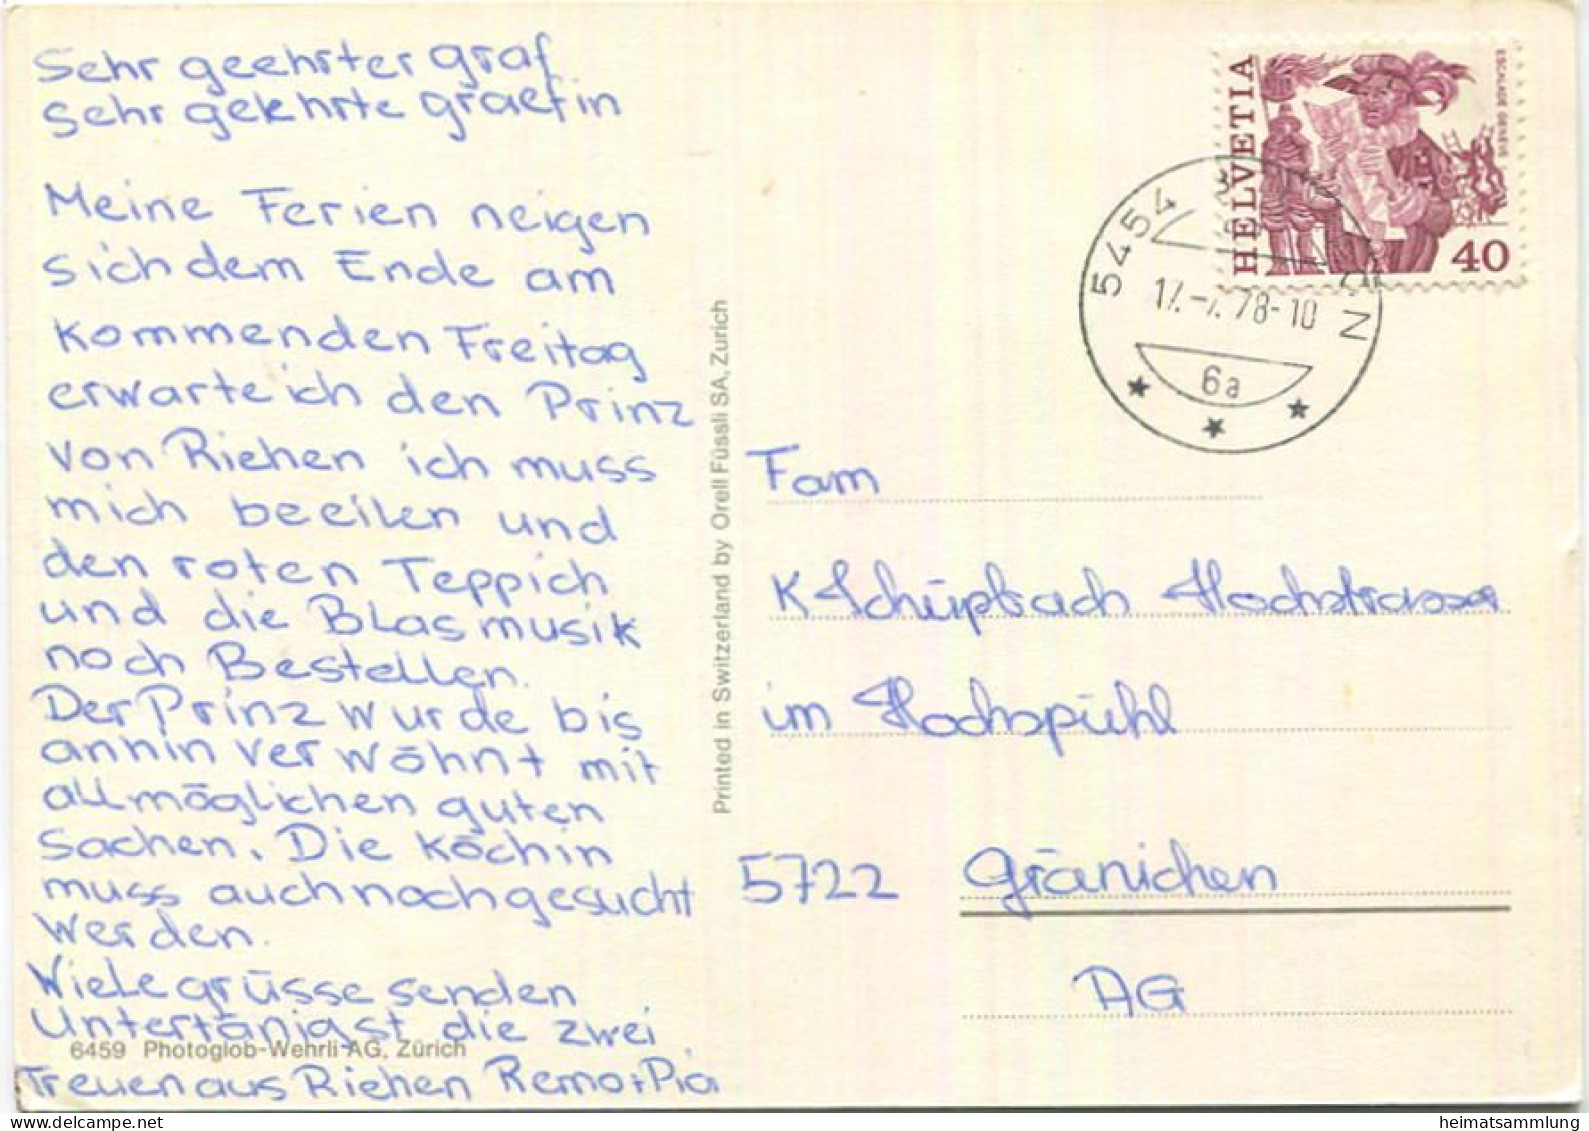 Sehr geehrter graf
Sehr geehrte graefin
Meine Ferien neigen
sich dem Ende am
kommenden Freitag
erwarte ich den Prinz
von Riehen ich muss
mich beeilen und
den roten Teppich
und die Blasmusik
noch Bestellen.
Der Prinz wurde bis
anhin verwöhnt mit
allmöglichen guten
Sachen. Die Köchin
muss auch noch gesucht
werden.
Viele grüsse senden
Untertänigst die zwei
Treuen aus Riehen Remo+Pia
6459 Photoglob-Wehrli AG, Zürich
Printed in Switzerland by Orell Füssli SA, Zurich
HELVETIA
ESCALADE GENÈVE
40
5454
78-10
6a
Fam
K Schüpbach Hochstrasser
im Hochspühl
5722 Gränichen
AG
heimatsammlung